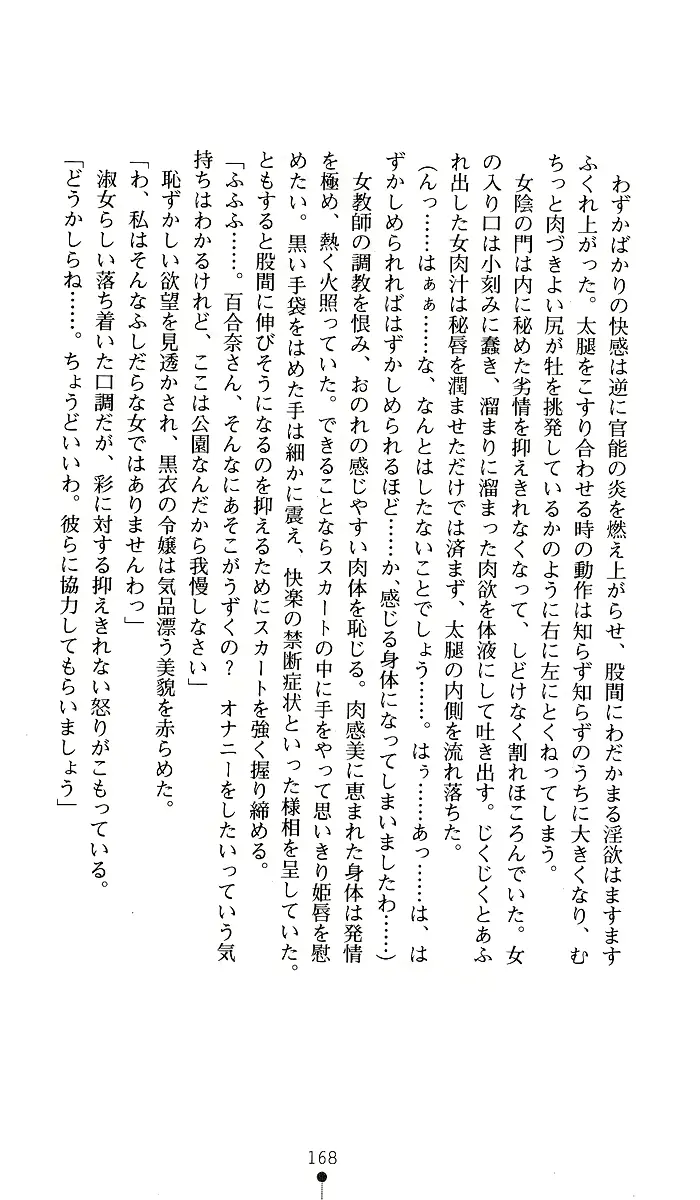 わずかばかりの快感は逆に官能の炎を燃え上がらせ、股間にわだかまる淫欲はますます
ふくれ上がった。太腿をこすり合わせる時の動作は知らず知らずのうちに大きくなり、む
ちっと肉づきよい尻が牡を挑発しているかのように右に左にとくねってしまう。
女陰の門は内に秘めた劣情を抑えきれなくなって、しどけなく割れほころんでいた。女
の入り口は小刻みに蠢き、溜まりに溜まった肉欲を体液にして吐き出す。じくじくとあふ
れ出した女肉汁は秘唇を潤ませただけでは済まず、太腿の内側を流れ落ちた。
(んっ……はぁぁ……な、なんとはしたないことでしょう……。はぅ……あっ……は、は
ずかしめられればはずかしめられるほど……か、感じる身体になってしまいましたわ……)
女教師の調教を恨み、おのれの感じやすい肉体を恥じる。肉感美に恵まれた身体は発情
を極め、熱く火照っていた。できることならスカートの中に手をやって思いきり姫唇を慰
めたい。黒い手袋をはめた手は細かに震え、快楽の禁断症状といった様相を呈していた。
ともすると股間に伸びそうになるのを抑えるためにスカートを強く握り締める。
「ふふふ……。百合奈さん、そんなにあそこがうずくの? オナニーをしたいっていう気
持ちはわかるけれど、ここは公園なんだから我慢しなさい」
恥ずかしい欲望を見透かされ、黒衣の令嬢は気品漂う美貌を赤らめた。
「わ、私はそんなふしだらな女ではありませんわっ」
淑女らしい落ち着いた口調だが、彩に対する抑えきれない怒りがこもっている。
「どうかしらね……。ちょうどいいわ。彼らに協力してもらいましょう」
168